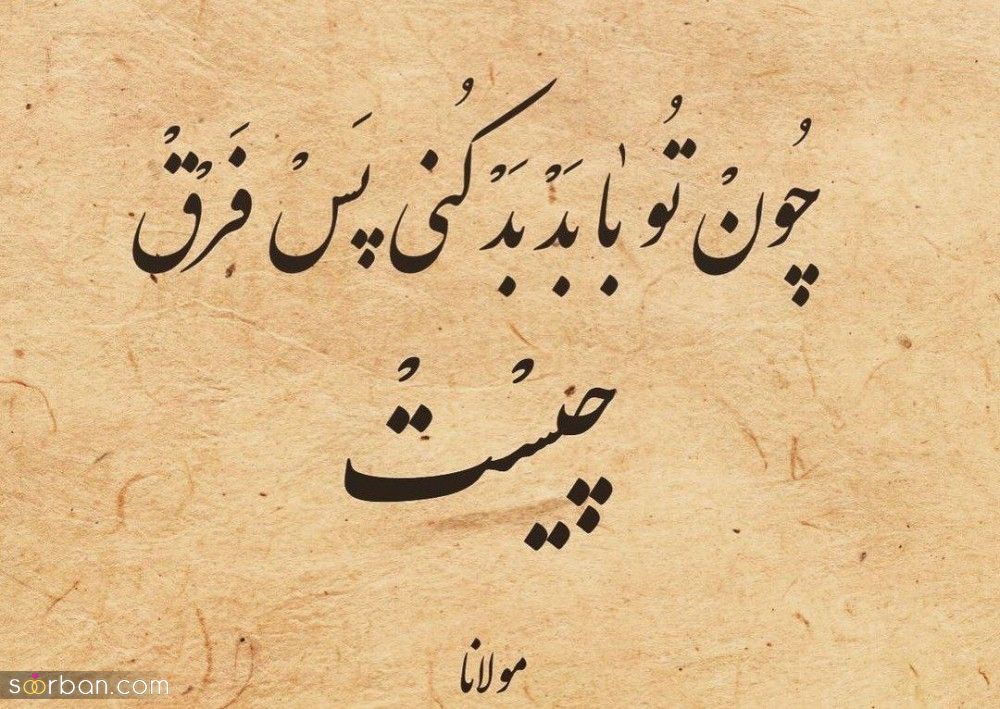 چُونْ تُو بٰا بَدْ بَدْ کُنی پَسْ فَرْقْ
چیسْتْ
مولانا
soorban.com